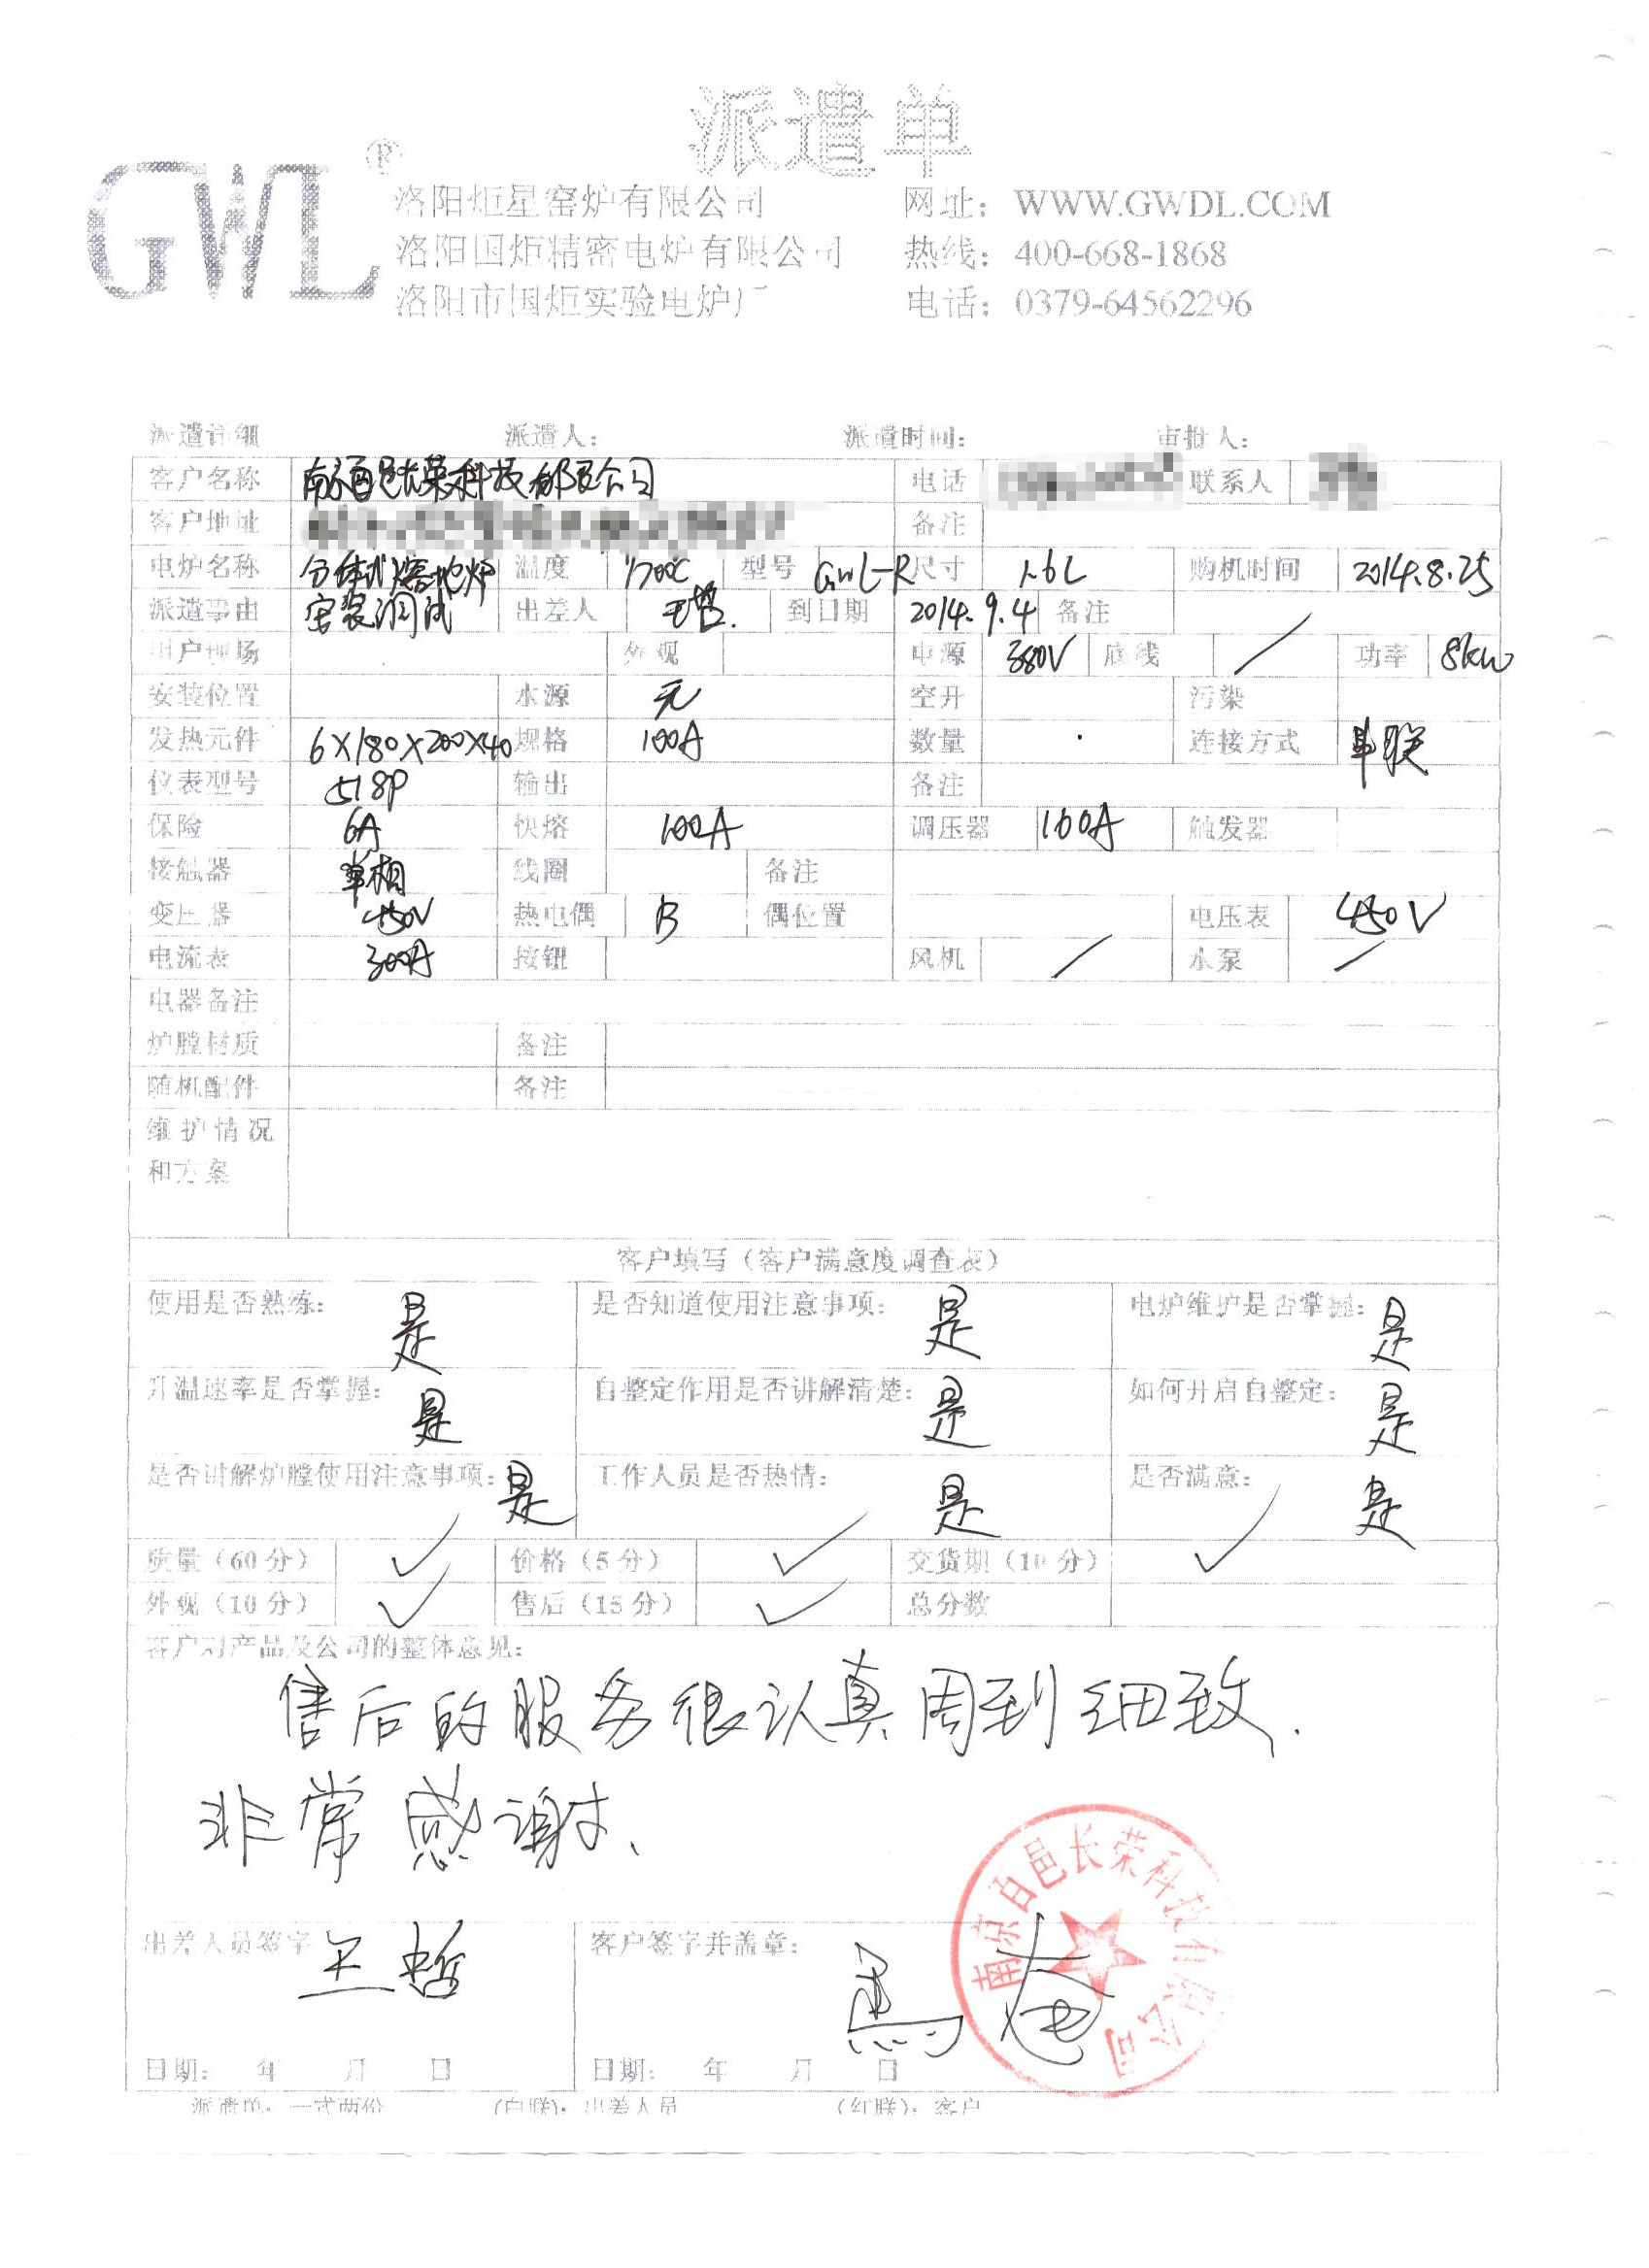 派遣单
GWL®
洛阳炬星窑炉有限公司 网址：WWW.GWDL.COM
洛阳国炬精密电炉有限公司 热线：400-668-1868
洛阳市国炬实验电炉厂 电话：0379-64562296
派遣详细 派遣人： 派遣时间： 审批人：
客户名称 南京百邑长荣科技有限公司 电话 联系人
客户地址 备注
电炉名称 分体式熔地炉 温度 1700℃ 型号 GWL-R 尺寸 1.6L 购机时间 2014.8.25
派遣事由 安装调试 出差人 王哲. 到日期 2014.9.4 备注
用户现场 外观 电源 380V 底线 / 功率 8kw
安装位置 水源 无 空开 污染
发热元件 6×180×200×40 规格 100A 数量 连接方式 串联
仪表型号 518P 输出 备注
保险 6A 快熔 100A 调压器 160A 触发器
接触器 单相 线圈 备注
变压器 450V 热电偶 B 偶位置 电压表 450V
电流表 300A 按钮 风机 / 水泵 /
电器备注
炉膛材质 备注
随机配件 备注
维护情况
和方案
客户填写（客户满意度调查表）
使用是否熟练： 是 是否知道使用注意事项： 是 电炉维护是否掌握： 是
升温速率是否掌握： 是 自整定作用是否讲解清楚： 是 如何开启自整定： 是
是否讲解炉膛使用注意事项： 是 工作人员是否热情： 是 是否满意： 是
质量（60分） ✓ 价格（5分） ✓ 交货期（10分） ✓
外观（10分） ✓ 售后（15分） ✓ 总分数
客户对产品及公司的整体意见：
售后的服务很认真周到细致.
非常感谢.
南京百邑长荣科技有限公司
出差人员签字 王哲 客户签字并盖章：
日期： 年 月 日 日期： 年 月 日
派遣单：一式两份 （白联）：出差人员 （红联）：客户